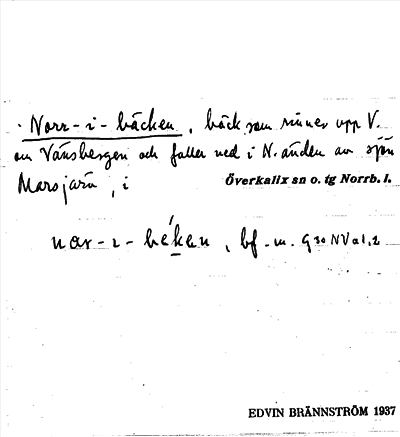 Norr-i-bäcken, bäck som rinner upp V.
om Vänsbergen och faller ned i N. änden av sjön
Marsjärv, i Överkalix sn o. tg Norrb. l.
nar-ı-béken, bf. m. G30NVa1,2
EDVIN BRÄNNSTRÖM 1937